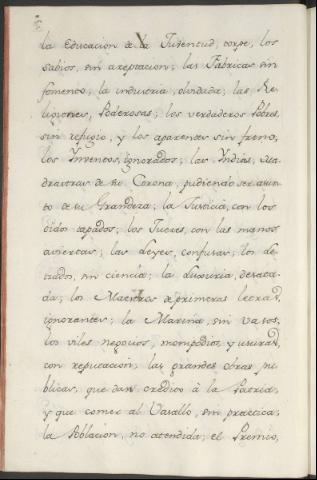 la Educacion de la Juventud, torpe, los
sabios, sin aceptacion; las Fabricas sin
fomento; la industria, olvidada; las Re-
ligiones, Poderosas; los verdaderos Pobres,
sin refugio, y los aparentes sin freno;
los Ynventos, ignorados; las Yndias,
de tu Corona, pudiendo ser aum-
to de tu Grandeza; la Justicia, con los
oidos tapados; los Jueces, con las manos
aviertas; las Leyes, confusas; los le-
trados, sin ciencia; la Luxuria, desata-
da; los Maestros de primeras letras,
ignorantes; la Marina, sin vasos;
los viles negocios, monopodios, y usuras,
con reputacion; las grandes obras pu-
blicas, que dan creditos à la Patria,
y que comer al Vasallo, sin practica;
la Poblacion, no atendida; el Premio,